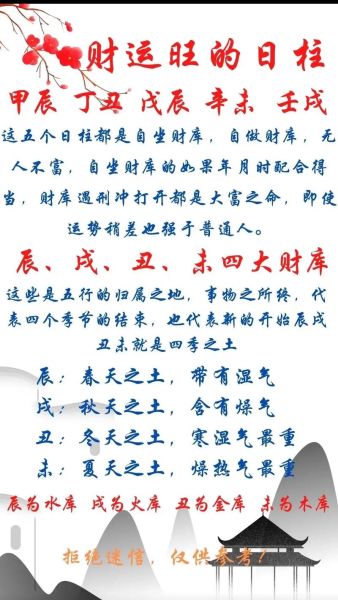 财运旺的日柱
甲辰 丁丑 戊辰 辛未 壬戌
这五个日柱都是自坐财库，自做财库，无
人不富，自坐财库的如果年月时配合得
当，财库遇刑冲打开都是大富之命，即使
运势稍差也强于普通人。
辰、戌、丑、未四大财库
这些是五行的归属之地，事物之所终，代
表四个季节的结束，也代表新的开始辰戌
丑未就是四季之土
辰：春天之土，带有湿气
戌：秋天之土，含有燥气
丑：冬天之土，寒湿气最重
未：夏天之土，燥热气最重
辰为水库 戌为火库 丑为金库 未为木库
拒绝迷信，仅供参考！